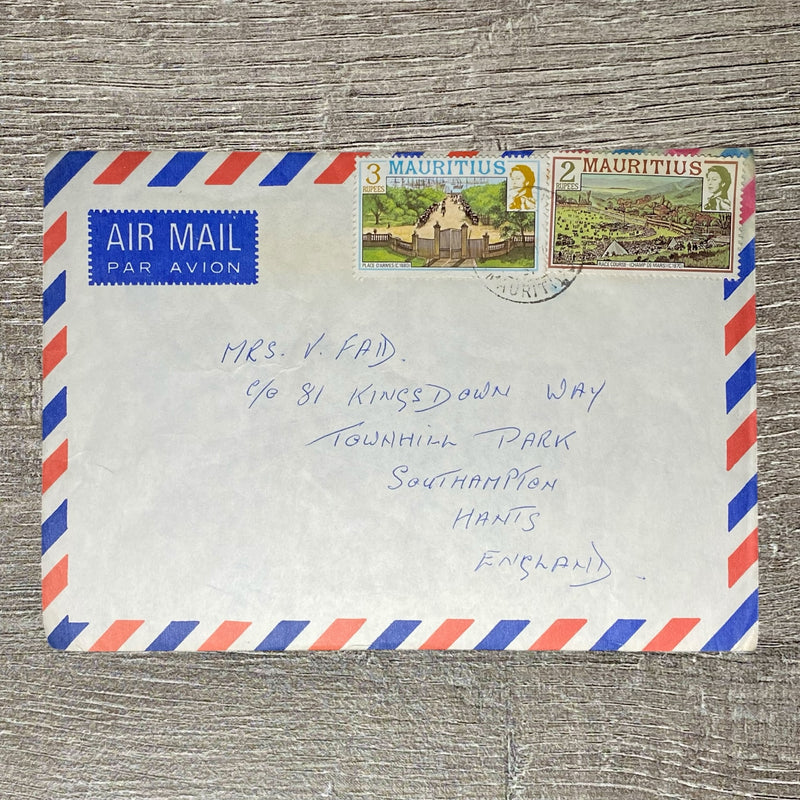 AIR MAIL
PAR AVION
3
RUPEES
MAURITIUS
PLACE D'ARMES (C. 1880)
2
RUPEES
MAURITIUS
RACE COURSE - CHAMP DE MARS (C. 1870)
MAURITIU
MRS. V. FAID.
c/o 81 KINGSDOWN WAY
TOWNHILL PARK
SOUTHAMPTON
HANTS
ENGLAND.